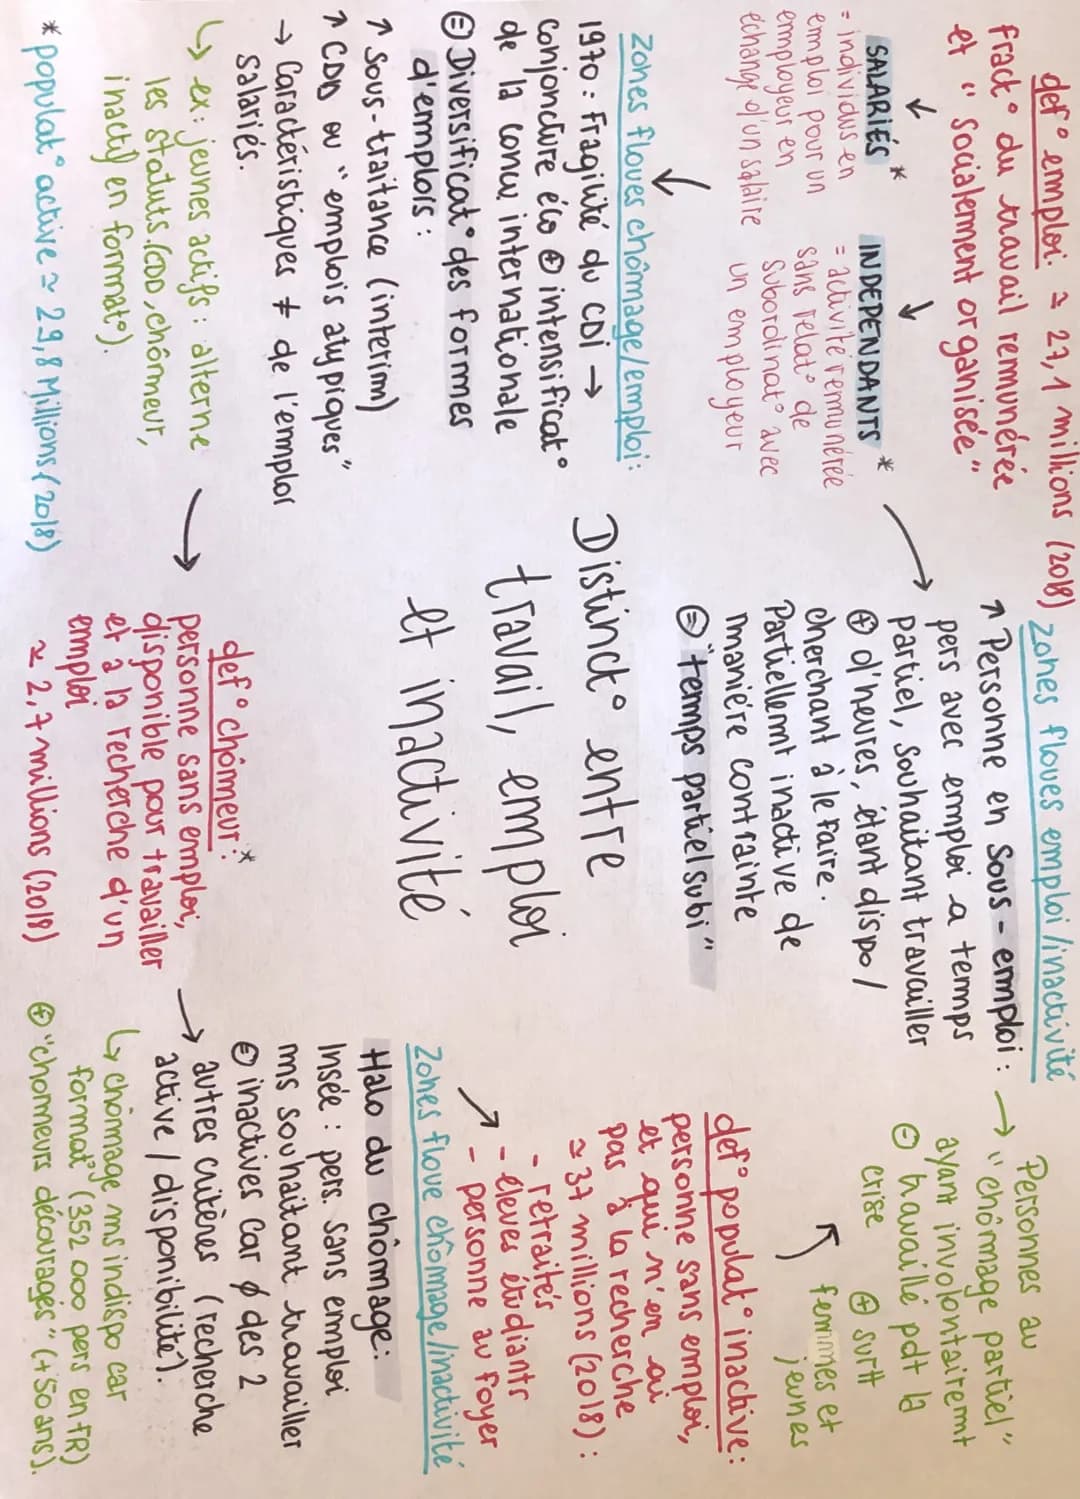 def° emploi: ≃ 27,1 millions (2018)
fract° du travail rémunérée
et "socialement organisée"
SALARIÉS *
= individus en
emploi pour un
employeur en
échange d'un salaire
INDEPENDANTS *
= activité rémunérée
sans relat° de
subordinat° avec
un employeur
Zones floues emploi/inactivité
↗ Personne en sous-emploi :
pers avec emploi a temps
partiel, souhaitant travailler
⊕ d'heures, étant dispo /
cherchant à le faire.
Partiellemnt inactive de
manière contrainte
⊜ "temps partiel subi"
→ Personnes au
"chômage partiel"
ayant involontairemt
⊖ travaillé pdt la
crise ⊕ surtt
femmes et
jeunes
Zones floues chômage/emploi:
1970 : Fragilité du CDI →
conjoncture éco ⊕ intensificat°
de la concu internationale
⊜ Diversificat° des formes
d'emplois :
↗ Sous-traitance (interim)
↗ CDD ou "emplois atypiques"
→ Caractéristiques ≠ de l'emploi
salariés.
↳ ex: jeunes actifs : alterne
les statuts (CDD, chômeur,
inactif en format°).
* populat° active ≃ 29,8 Millions (2018)
Distinct° entre
travail, emploi
et inactivité
def° chômeur :*
personne sans emploi,
disponible pour travailler
et à la recherche d'un
emploi
≃ 2,7 millions (2018)
def° populat° inactive:
personne sans emploi,
et qui n'en ai
pas à la recherche
≃ 37 millions (2018) :
- retraités
- élèves étudiants
- personne au foyer
Zones floue chômage/inactivité
Halo du chômage:
Insée : pers. sans emploi
ms souhaitant travailler
⊜ inactives car ∅ des 2
autres critères (recherche
active / disponibilité).
↳ chômage ms indispo car
format° (352 000 pers en FR)
⊕ "chomeurs découragés" (+50ans).